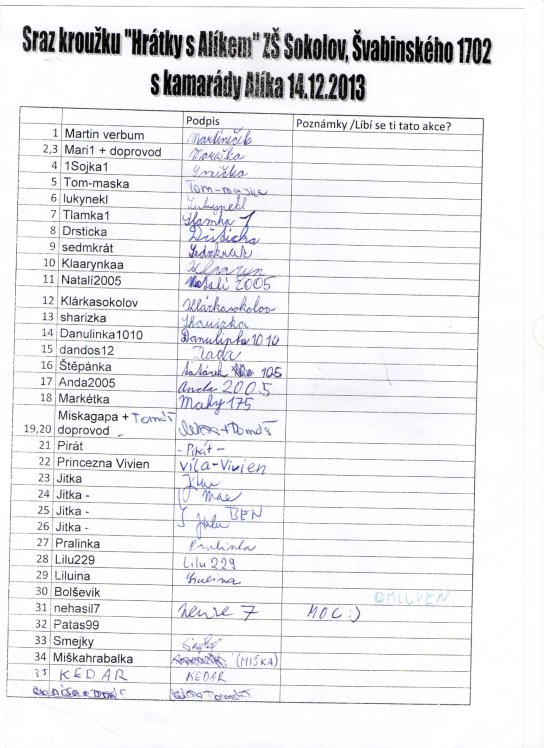 Sraz kroužku "Hrátky s Alíkem" ZŠ Sokolov, Švabinského 1702
s kamarády Alíka 14.12.2013
Podpis Poznámky /Líbí se ti tato akce?
1 Martin verbum Martiničik
2,3 Mari1 + doprovod
4 1Sojka1
5 Tom-maska Tom-maska
6 lukynekl Lukynekl
7 Tlamka1 tlamka 1
8 Drsticka Drsticka
9 sedmkrát Sedmkrát
10 Klaarynkaa
11 Natalí2005 Natalí 2005
12 Klárkasokolov Klárkasokolov
13 sharizka Sharizka
14 Danulinka1010 Danulinka 1010
15 dandos12
16 Štěpánka 105
17 Anda2005 Anda 2005
18 Markétka Maky175
19,20 Miskagapa + Tomáš doprovod +Tomáš
21 Pirát - Pirát -
22 Princezna Vivien víla-Vivien
23 Jitka
24 Jitka - Mae
25 Jitka - BEN
26 Jitka -
27 Pralinka Pralinka
28 Lilu229 Lilu 229
29 Liluina
30 Bolševik OMLUVEN
31 nehasil7 MOC :)
32 Patas99
33 Smejky
34 Miškahrabalka (MIŠKA)
35 KEDAR KEDAR